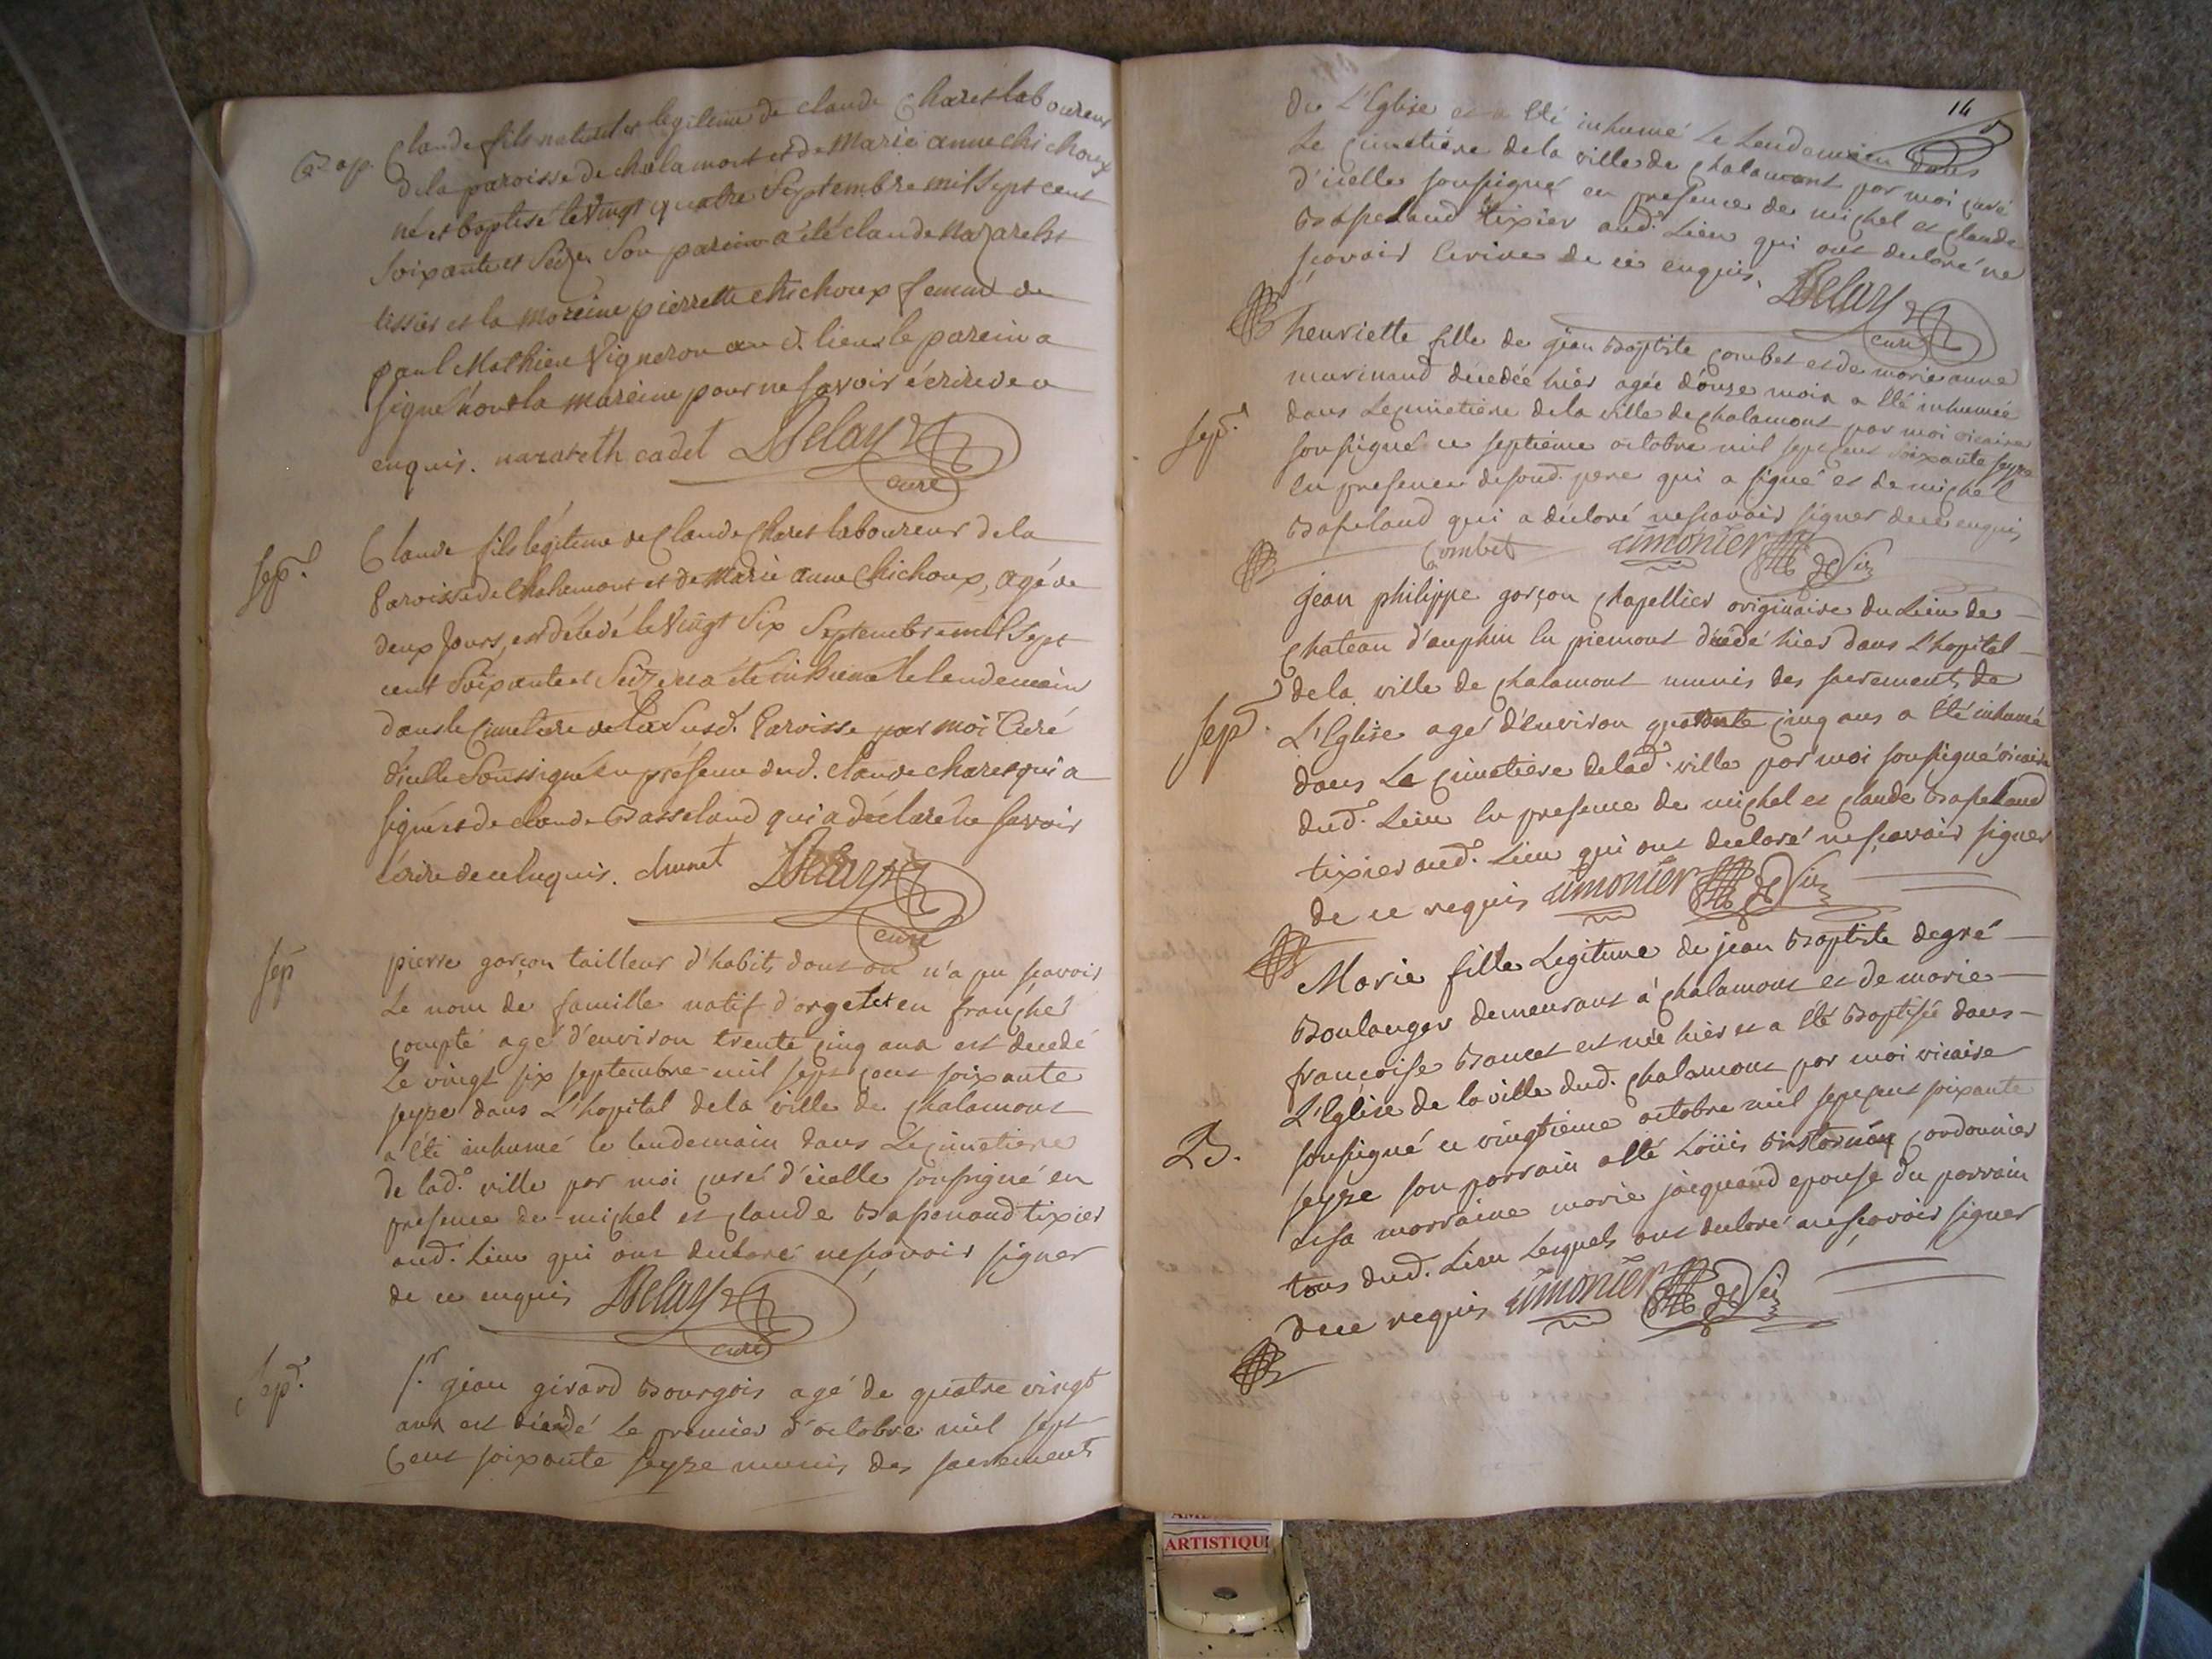 Bap. Claude fils naturel et legitime de claude Charet laboureur
de la paroisse de chalamont et de Marie anne chichoux
né et baptisé le vingt quatre Septembre mil Sept cent
Soixante et Seize Son parein a été claude Nazareht
tissier et la mareine pierrette chichoux femme de
paul Mathieu Vigneron au d. lieu le parein a
signé non la mareine pour ne savoir écrire de ce
enquis. nazareth cadet Delay
curé
Sep.re Claude fils légitime de Claude Charet laboureur de la
Paroisse de Chalamont et de Marie anne Chichoux, agé de
deux Jours, est décédé le Vingt Six Septembre mil Sept
cent Soixante et Seize et a été inhumé le lendemain
dans le Cimetiere de la Susd. Paroisse par moi Curé
d'icelle Soussigné en présence dud. claude charet qui a
signé et de claude Basseland qui a déclaré ne savoir
écrire de ce enquis. charet Delay
curé
Sep pierre garçon tailleur d'habits dont on n'a pu scavoir
Le nom de famille natif d'orgelet en franche
compté agé d'environ trente cinq ans est decedé
Le vingt six septembre mil sept cent soixante
seyze dans L'hopital dela ville de chalamont
a été inhumé le lendemain dans Le cimetiere
de lad. ville par moi curé d'icelle soussigné en
presence de michel et claude Bassenaud tixier
aud. Lieu qui ont declaré ne scavoir signer
de ce enquis Delay
curé
Sep.re S.r jean girard Bourgois agé de quatre vingt
ans est decedé Le premier d'octobre mil sept
Cent soixante seyze munis des sacrements
14
de L'Eglise et a été inhumé Le Lendemain dans
Le cimetiere de la ville de chalamont par moi curé
d'icelle soussigné en presence de michel et claude
Basseland tixier aud. Lieu qui ont declaré ne
scavoir Ecrire de ce enquis. Delay
curé
henriette fille de jean Baptiste combet et de marie anne
marinand décedée hier agée d'onze mois a été inhumée
Sep.re dans Le cimetiere de la ville de chalamont par moi vicaire
soussigné ce septieme octobre mil sept cent soixante seyze
En presence de sond. pere qui a signé et de michel
Basseland qui a déclaré ne scavoir signer de ce enquis
Combet Simonier vic
jean philippe garçon chapellier originaire du Lieu de
chateau d'auphin En piemont décedé hier dans L'hopital
de la ville de chalamont munis des sacrements de
Sep.re L'Eglise agé d'environ quarante cinq ans a été inhumé
dans Le cimetiere de lad. ville par moi soussigné vicaire
dud. Lieu En presence de michel et claude Basseland
tixier aud. Lieu qui ont declaré ne scavoir signer
de ce requis Simonier vic
Marie fille Legitime de jean Baptiste degré
Boulanger demeurant à chalamont et de marie
françoise Bancet est née hier et a été Baptisée dans
L'Eglise de la ville dud. chalamont par moi vicaire
B. soussigné ce vingtieme octobre mil sept cent soixante
seyze son parrain a été Loüis cordonnier
et sa marraine marie jacquand epouse du parrain
tous dud. Lieu Lesquels ont declaré ne scavoir signer
de ce requis Simonier vic
ARTISTIQU